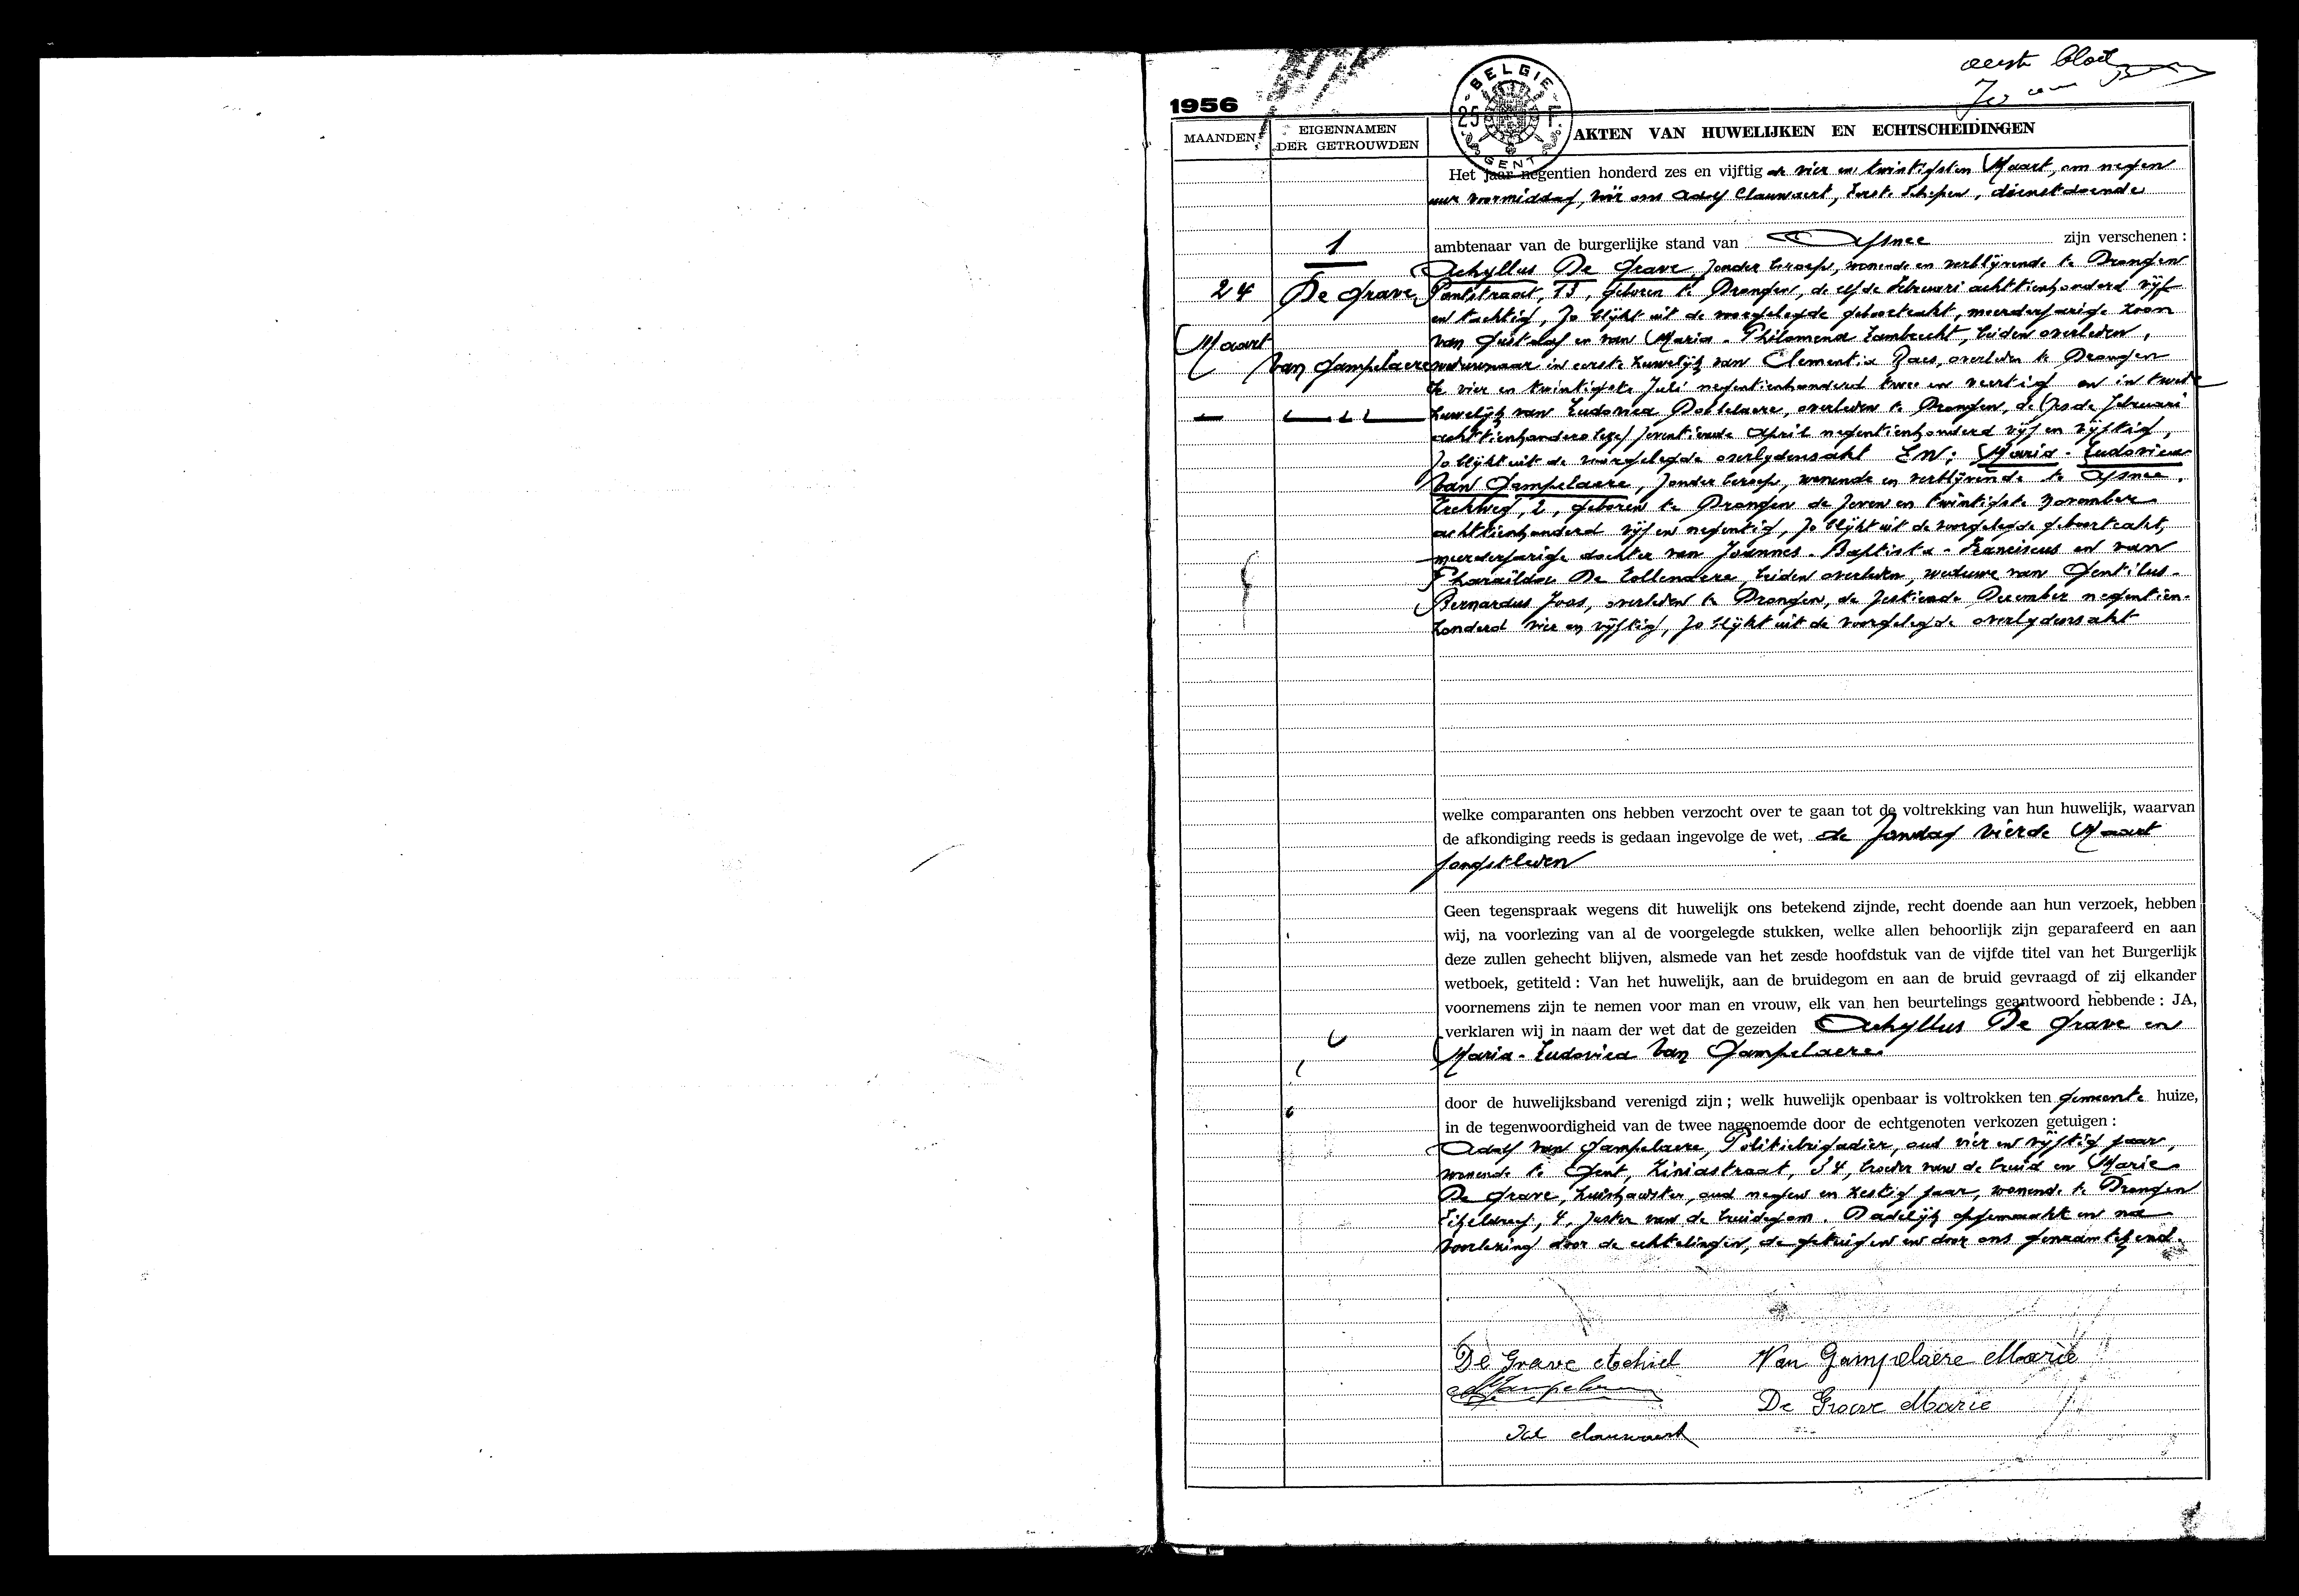 eerste blad
1956
BELGIE
25 F
GENT
MAANDEN
EIGENNAMEN
DER GETROUWDEN
AKTEN VAN HUWELIJKEN EN ECHTSCHEIDINGEN
Het jaar negentien honderd zes en vijftig de vier en twintigsten Maart, om negen
uur voormiddag, vóór ons Adolf Clauwaert, Eerste Schepen, dienstdoende
1
ambtenaar van de burgerlijke stand van Afsnee zijn verschenen :
24
De Grave
Maart
Van Gampelaere
Achyllus De Grave, zonder beroep, wonende en verblijvende te Drongen
Pontstraat, 13, geboren te Drongen, de elfde Februari achttienhonderd vijf
en tachtig, zo blijkt uit de voorgelegde geboorteakt, meerderjarige zoon
van Gustaaf en van Maria-Philomena Lambrecht, beiden overleden,
weduwnaar in eerste huwelijk van Clementia Raes, overleden te Drongen
de vier en twintigste Juli negentienhonderd twee en veertig en in tweede
huwelijk van Ludovica Dobbelaere, overleden te Drongen, de
zeventiende April negentienhonderd vijf en vijftig,
zo blijkt uit de voorgelegde overlydensakt EN; Maria-Ludovica
Van Gampelaere, zonder beroep, wonende en verblijvende te Afsnee,
2, geboren te Drongen de zeven en twintigste November
achttienhonderd vijf en negentig, zo blijkt uit de voorgelegde geboorteakt,
meerderjarige dochter van Joannes-Baptista-Franciscus en van
Pharaïlda De Collendere, beiden overleden, weduwe van Gentilus-
Bernardus Joos, overleden te Drongen, de zestiende December negentien-
honderd vier en vijftig, zo blijkt uit de voorgelegde overlydensakt
welke comparanten ons hebben verzocht over te gaan tot de voltrekking van hun huwelijk, waarvan
de afkondiging reeds is gedaan ingevolge de wet, de zondag vierde Maart
jongstleden
Geen tegenspraak wegens dit huwelijk ons betekend zijnde, recht doende aan hun verzoek, hebben
wij, na voorlezing van al de voorgelegde stukken, welke allen behoorlijk zijn geparafeerd en aan
deze zullen gehecht blijven, alsmede van het zesde hoofdstuk van de vijfde titel van het Burgerlijk
wetboek, getiteld : Van het huwelijk, aan de bruidegom en aan de bruid gevraagd of zij elkander
voornemens zijn te nemen voor man en vrouw, elk van hen beurtelings geantwoord hebbende : JA,
verklaren wij in naam der wet dat de gezeiden Achyllus De Grave en
Maria-Ludovica Van Gampelaere
door de huwelijksband verenigd zijn ; welk huwelijk openbaar is voltrokken ten gemeente huize,
in de tegenwoordigheid van de twee nagenoemde door de echtgenoten verkozen getuigen :
Adolf van Gampelaere, Politiebrigadier, oud vier en vijftig jaar,
wonende te Gent, Ziniastraat, 34, broeder van de bruid en Marie
De Grave, huishoudster, oud negen en zestig jaar, wonende te Drongen
4, zuster van de bruidegom. Dadelijk opgemaakt en na
voorlezing door de echtelingen, de getuigen en door ons genaamtekend.
De Grave Achiel
Van Gampelaere Marie
De Grave Marie
Ad Clauwaert